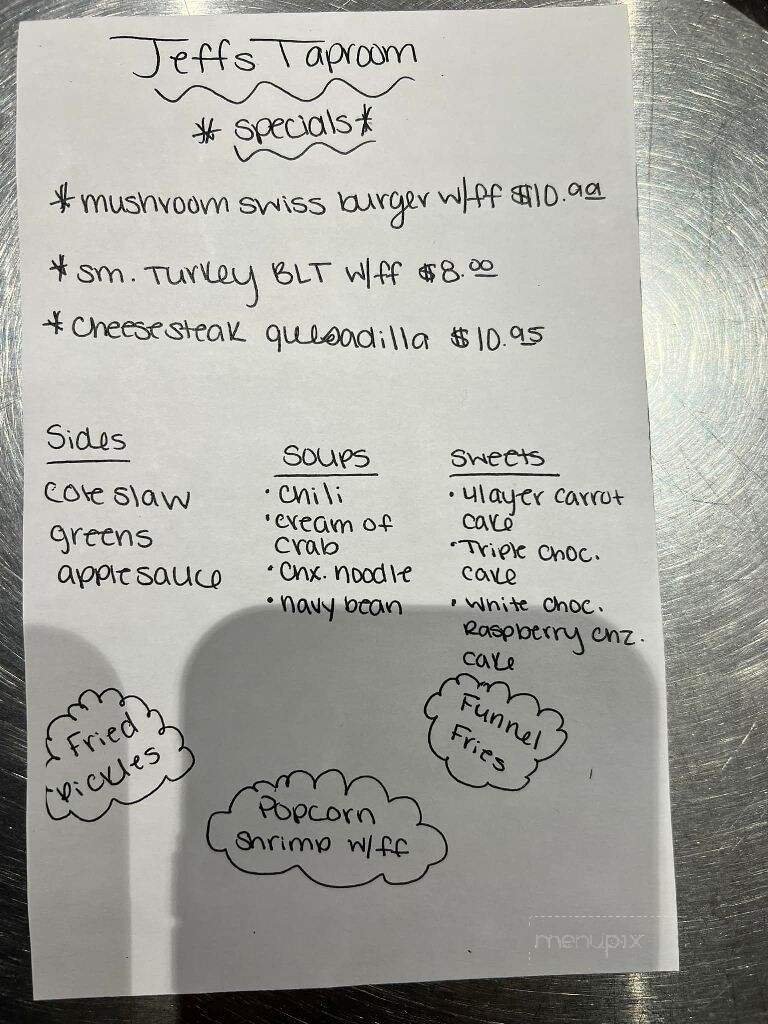 Jeffs Taproom
* specials *
* mushroom swiss burger w/ff $10.99
* sm. Turkey BLT w/ff $8.00
* cheesesteak quesadilla $10.95
Sides
cole slaw
greens
applesauce
Soups
• chili
• cream of
crab
• chx. noodle
• navy bean
Sweets
• 4layer carrot
cake
• Triple choc.
cake
• white choc.
Raspberry chz.
cake
Fried
pickles
Funnel
Fries
Popcorn
shrimp w/ff
menupix